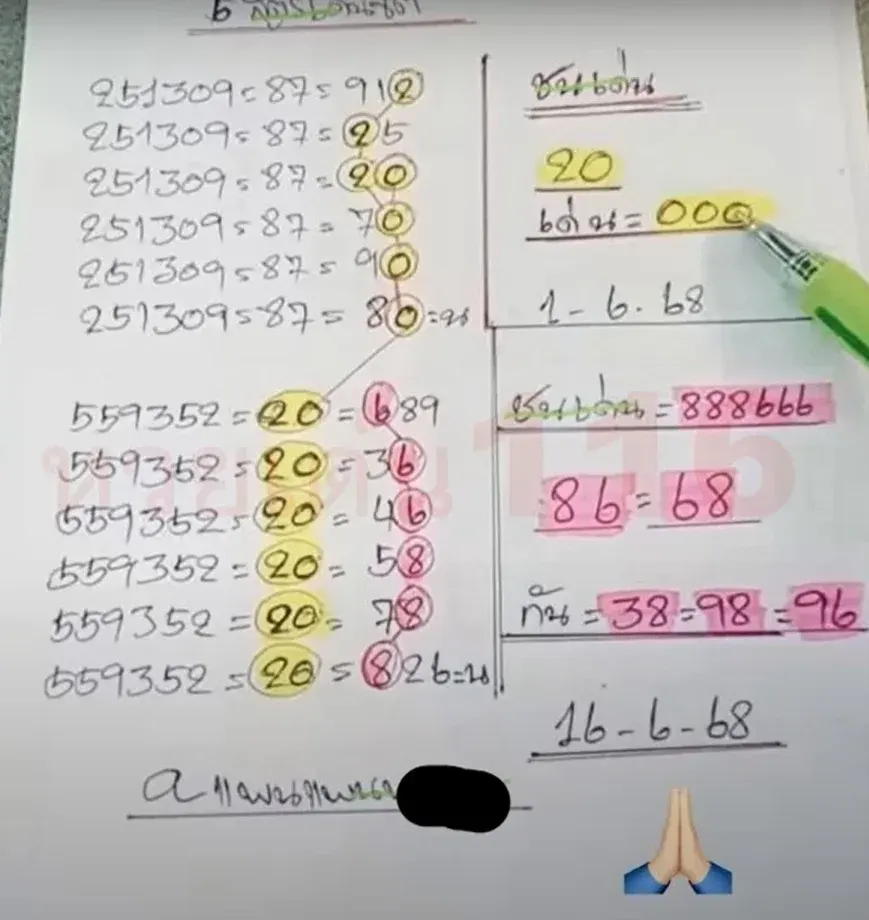 6 สูตรเด่นชน
251309=87=912
251309=87=25
251309=87=20
251309=87=70
251309=87=90
251309=87=80=บน
ชนเด่น
20
เด่น=000
1-6.68
559352=20=689
559352=20=36
559352=20=46
559352=20=58
559352=20=78
559352=20=826=น
ชนเด่น=888666
86=68
กัน=38=98=96
16-6-68
115